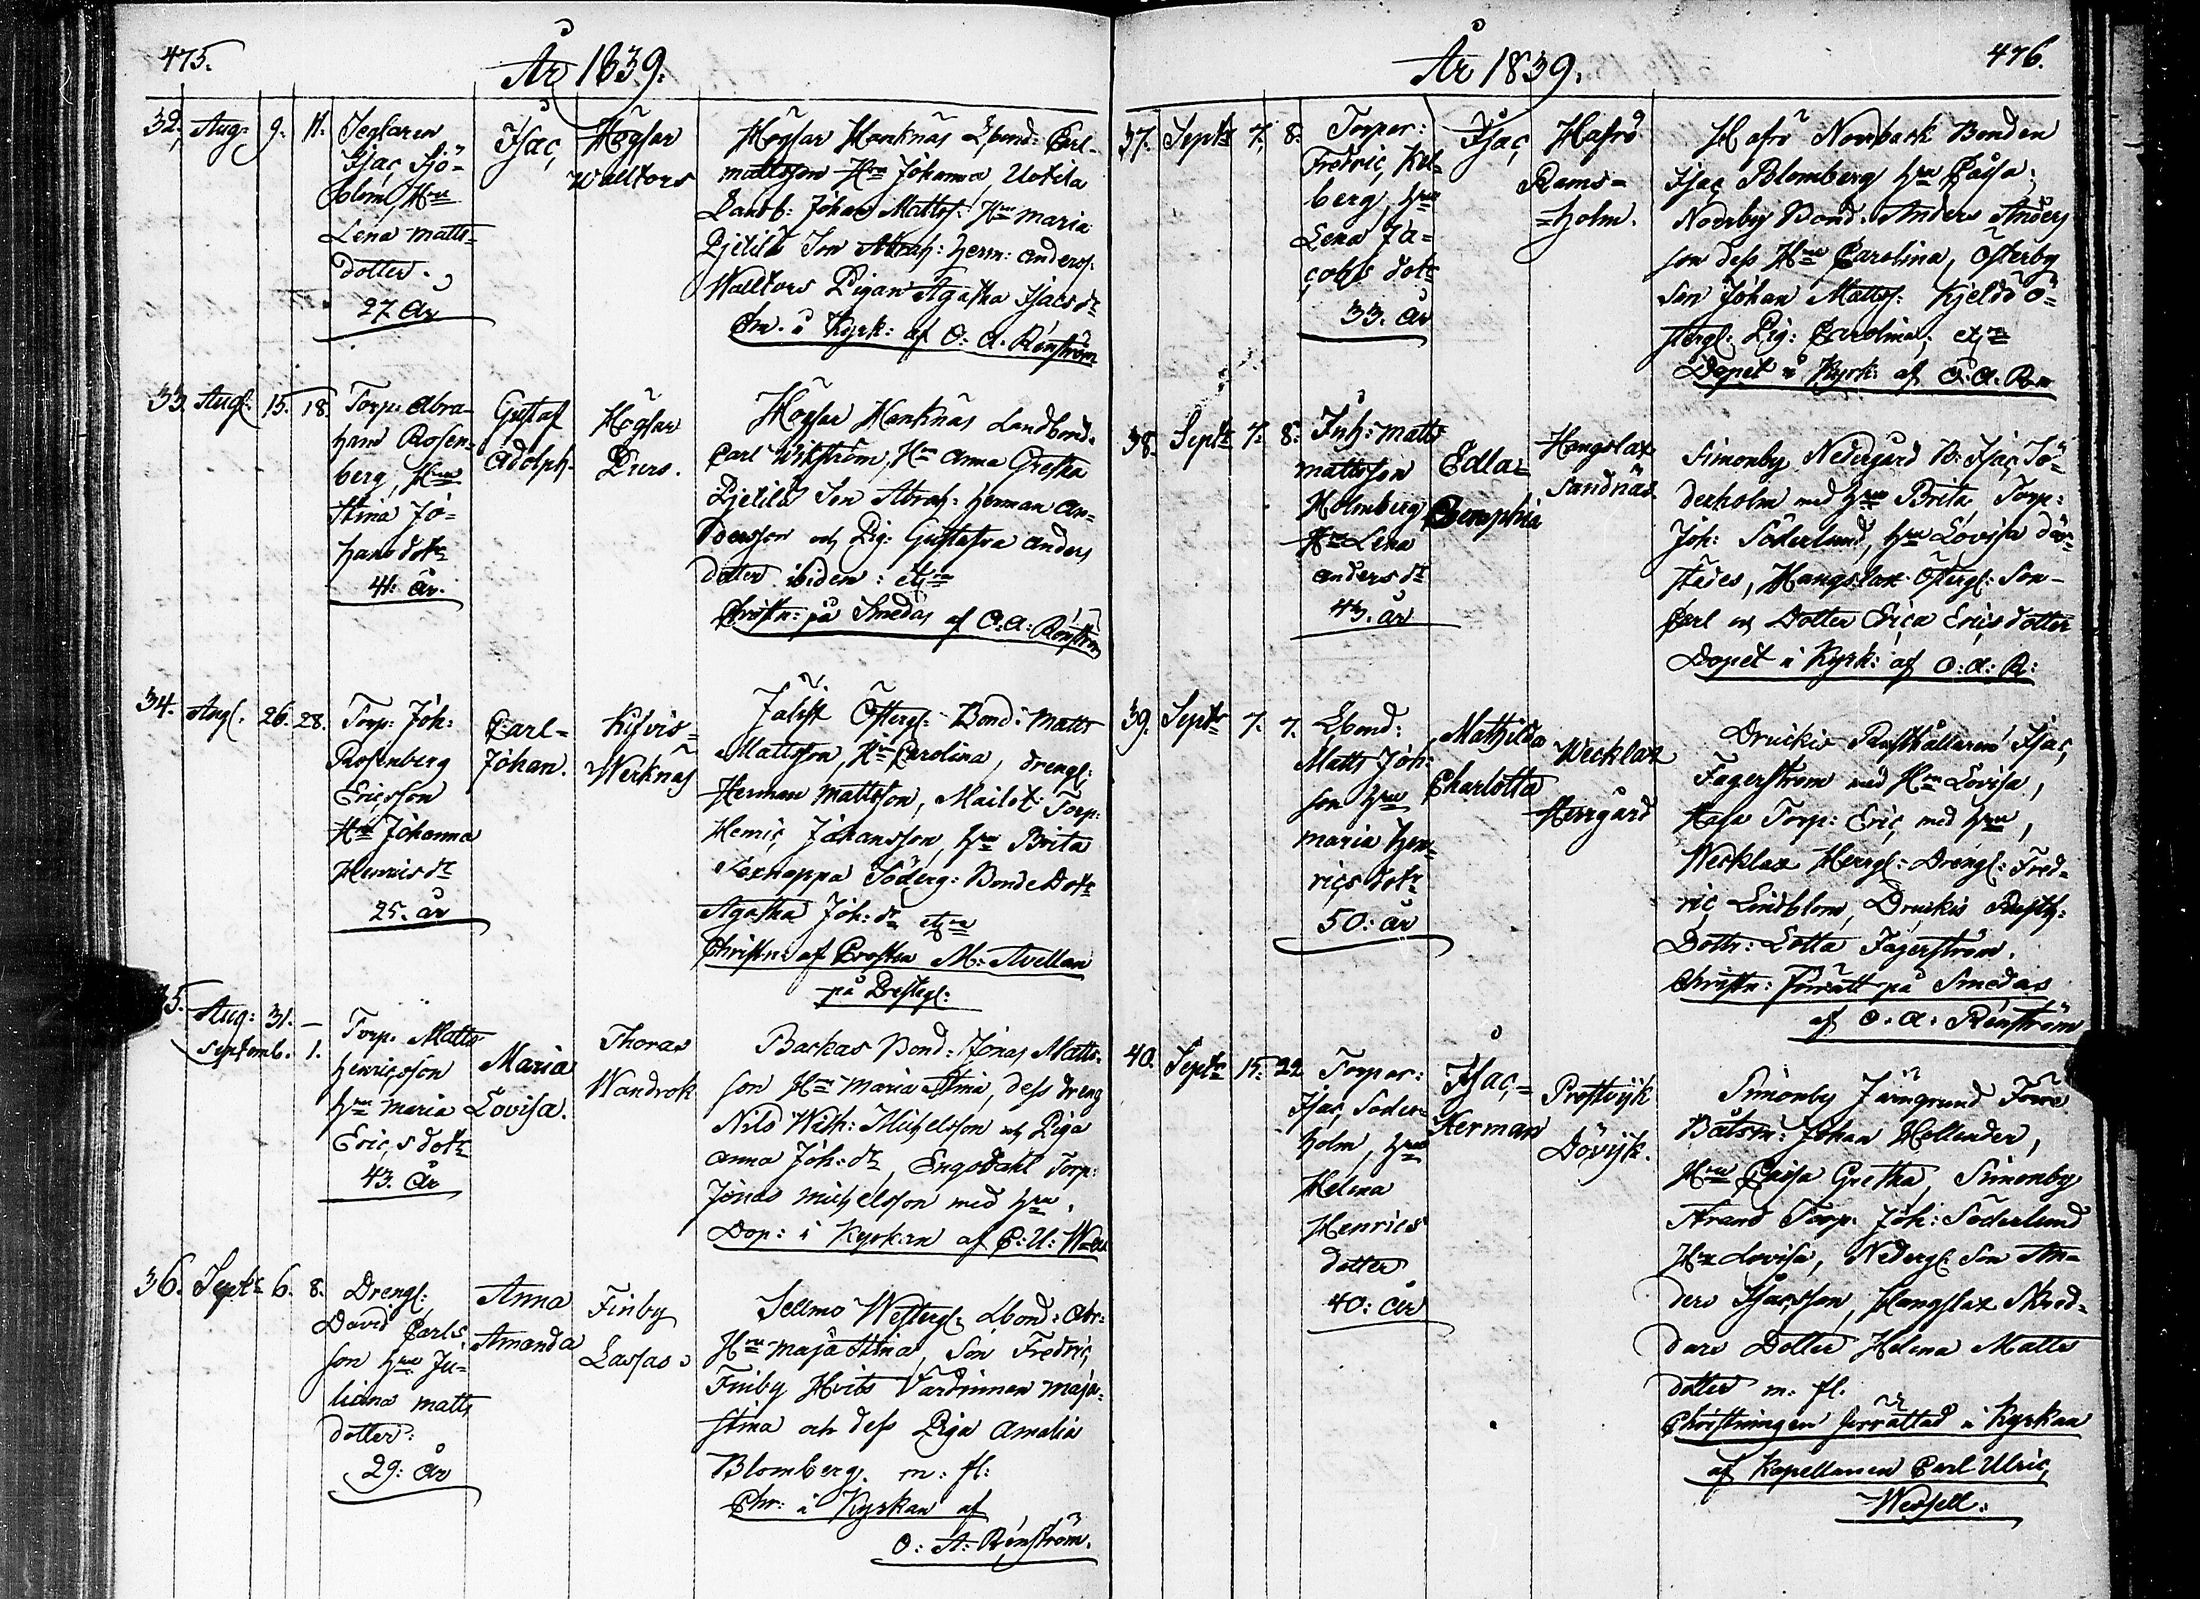 475.
År 1839.
32. Aug: 9. 11.
Seglaren
Isac Sjö-
blom, Hru
Lena Matts-
dotter.
27 År
Isac
Högsar
Walltors
Högsar Hanknäs Lbond: Carl
Mattsson Hru Johanna, Utötila
Landb: Johan Mattss: Hru Maria
Pjetilä Son Abrah: Herm: Anderss:
Walltors Pigan Agatha Isacs dr
Chr. i Kyrk: af O: A: Renström
33. Aug. 15. 18.
Torp. Abra-
ham Rosen-
berg, Hru
Stina Jo-
hans dotr
41: år.
Gustaf
Adolph.
Högsar
Purs.
Högsar Hanknäs Landbond.
Carl Wikström, Hru Anna Gretha
Pjetilä Son Abrah: Herman An-
dersson och Pig: Gustafva Anders
dotter ibidem: etc
Christn: på Smedas af O: A: Renström
34. Aug. 26. 28.
Torp: Joh:
Rosenberg
Ericsson
Hru Johanna
Henrics dr
25. år
Carl-
Johan.
Kifvis-
Werknäs
Jalist Östergl: Bond: Matts
Mattsson, Hru Carolina, Drengl:
Herman Mattsson, Mailot Torp:
Henric Johansson, hru Brita
Söderg: Bonde Dotr
Agatha Joh: dr etc
Christn: af Prosten M: Avellan
på Prestg:
35. Aug: 31. –
Septemb. 1.
Torp. Matts
Henricsson
hru Maria
Erics dotr
43. År
Maria
Lovisa.
Thoras
Wandrok
Backas Bond: Jonas Matts-
son Hru Maria Stina, dess dreng
Nils Wilh: Michelsson och Piga
Anna Joh: dr, Engsdahl Torp:
Jonas Michelsson med hru.
Dop: i Kyrkan af C: U: W
36. Septr 6. 8.
Drengl:
David Carls-
son hru Ju-
liana Matts
dotter:
29: År
Anna
Amanda
Finby
Lassas
Sellmo Westergl: Lbond: Abr:
Hru Maja Stina, Son Fredric
Finby Hvits Värdinnan Maja-
stina och dess Piga Amalia
Blomberg. m: fl:
Chr: i Kyrkan af
O: A: Renström.
476.
År 1839.
37. Septr 7. 8.
Torpar:
Fredric Kul-
berg, hru
Lena Ja-
cobs dotr
33. År
Isac
Hafrö
Rams-
=holm.
Hafrö Norrback Bonden
Isac Blomberg hru Cajsa;
Norrby Bond. Anders Anders
son dess Hru Carolina, Österby
Son Johan Mattss: Kjeldö Ö-
stergl: Pig: Carolina, etc
Döpet i Kyrk: af O. A. Rm
38. Septr 7. 8.
Inh: Matts
Mattsson
Holmberg
Hru Lena
Anders dr
43. år
Edla
Seraphia
Hangslax
Sandnäs
Simonby Nedergård B: Isac Sö-
derholm med hru Brita, Torp:
Joh: Söderlund, hru Lovisa där-
städes, Hangslax Östergl: Son
Carl och Dotter Erica Erics dotter
Döpet i Kyrk: af O: A: R:
39. Septr 7. 7.
Lbond:
Matts Joh:
son hru
Maria Hen-
rics dotr
50: år
Mathilda
Charlotta
Wecklax
Herrgård
Druckis Rusthållaren Isac
Fagerström med Hru Lovisa,
Hasa Torp: Eric med hru,
Wecklax Herrgl: Drengl: Fred-
ric Lindblom, Druckis Rusth:
Dottr: Lotta Fagerström.
Christn: förrätt på Smedas
af O. A. Renström
40. Septr 15. 22
Torpar:
Isac Söder-
holm, hru
Helena
Henrics
dotter
40: År
Isac-
Herman
Prostvijk
Dövijk.
Simonby Järngrund Förre
Båtsm: Johan Hellender,
Hru Cajsa Gretha, Simonby
Strand Torp. Joh: Söderlund
Hru Lovisa, Nedergl: Son An-
ders Isacsson, Hangslax Skräd-
dars Dotter Helena Matts
dotter m. fl.
Christningen förrättad i Kyrkan
af Kapellanen Carl Ulric
Wessell: